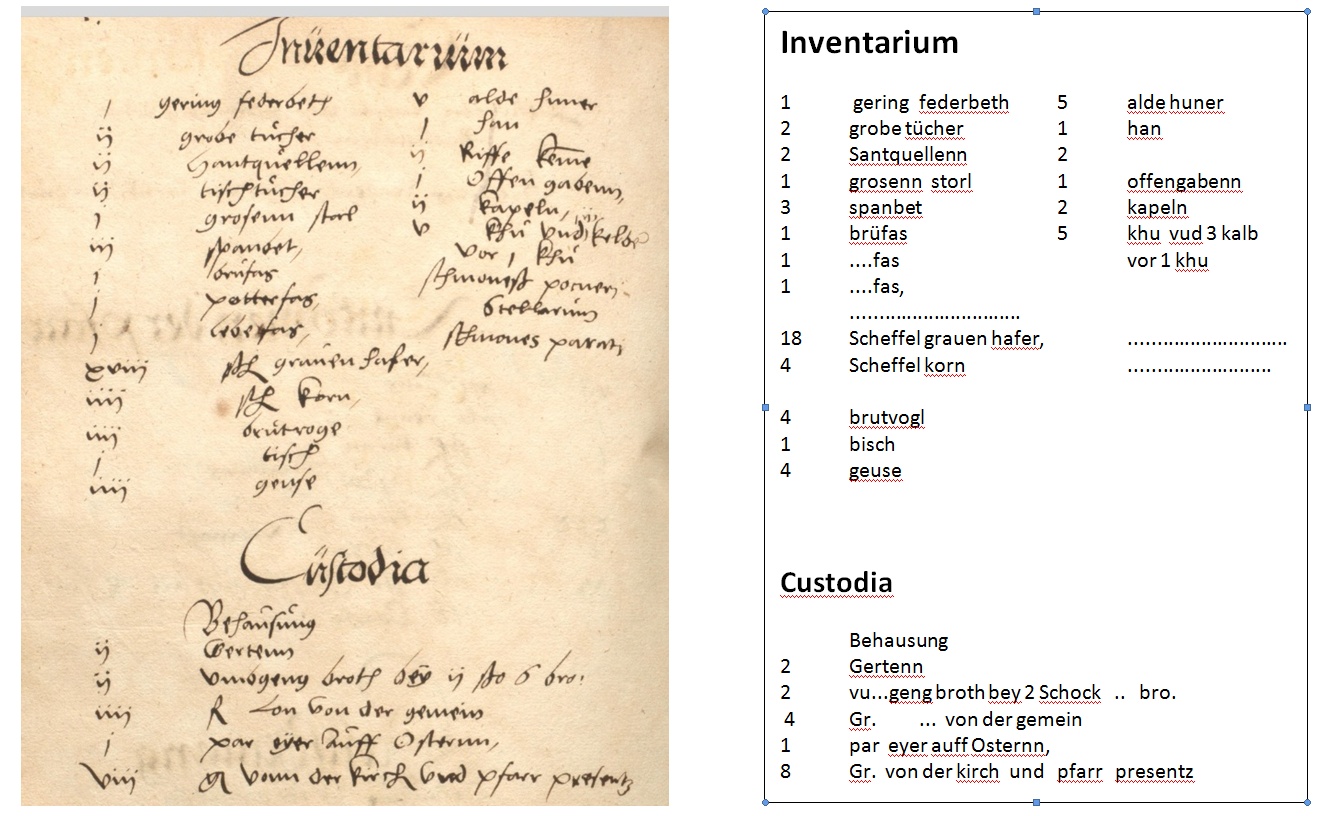 Inuentarium
j gering federbeth
ij grobe tücher
ij Hantquellenn,
ij tischtücher
j grosenn storl
iij spanbet,
j brüfas
j potterfas,
j
xviij sch grauen hafer,
iiij sch korn,
iiij brutroge
j tisch
iiij gense
v alde huner
j han
ij
j Offen gabenn,
ij kapeln,
v khü vnd iij kelbe
vor j khü
Custodia
Behausung
ij Gertenn
ij vmbgeng broth bey ij bro:
iiij Lon von der gemein
j par eyer auff Osternn,
viij gr vonn der kirch vnd pfarr presentz
Inventarium
1 gering federbeth
2 grobe tücher
2 Santquellenn
1 grosenn storl
3 spanbet
1 brüfas
1 ....fas
1 ....fas,
.............................
18 Scheffel grauen hafer,
4 Scheffel korn
4 brutvogl
1 bisch
4 geuse
5 alde huner
1 han
2
1 offengabenn
2 kapeln
5 khu vud 3 kalb
vor 1 khu
...........................
........................
Custodia
Behausung
2 Gertenn
2 vu...geng broth bey 2 Schock .. bro.
4 Gr. ... von der gemein
1 par eyer auff Osternn,
8 Gr. von der kirch und pfarr presentz